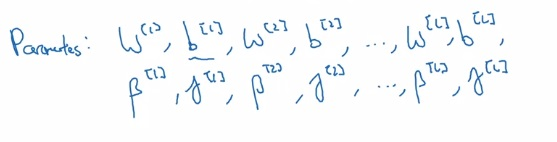 Parameters: W^[1], b^[1], W^[2], b^[2], ..., W^[L], b^[L],
β^[1], γ^[1], β^[2], γ^[2], ..., β^[L], γ^[L]